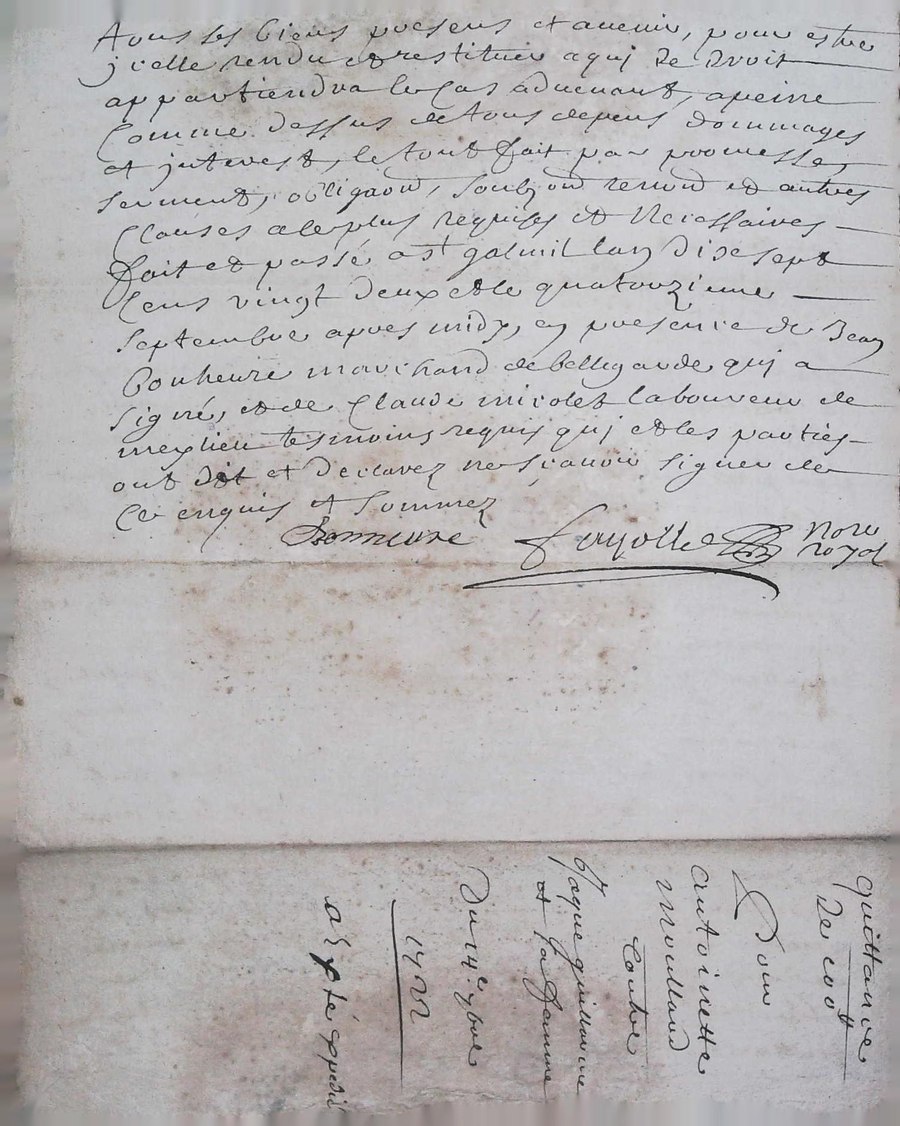 A tous ses biens presens et avenir, pour estre
jcelle rendu et restituer a quj de droit
appartiendra le cas advenant, a peine
comme dessus de tous depens dommages
et jnterest, le tout fait par promesse,
serment, obligaon, soubzon renon et autres
clauses a le plus requises et necessaires
fait et passé a st galmil lan dixsept
cens vingt deux et le quatorzieme
septembre apres midy, en presence de Jean
bonheure marchand de bellegarde quj a
signé, et de Claude micolet laboureur de
mexlieu tesmoins requis quj et les parties
ont dit et declarez ne sçavoir signer de
ce enquis et sommez
Bonneure fayolle nore
royal
quittance
de 100tt
Pour
antoinette
moullard
Contre
Jaque guillarme
et sa femme
Du 14e 7bre
1722
a esté expedié